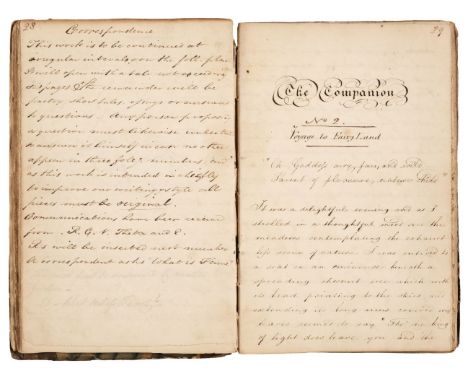 28
Correspondence
This work is to be continued at
irregular intervals on the foll. plan
It will open with a tale not exceeding
pages & the remainder will be
poetry short tales, essays or answers
to questions. Any person proposing
a question must likewise
an answer it himself in case no other
appear in the foll. number. And
as this work is intended chiefly
to improve our writing style all
pieces must be original.
Communications have been received
from R. G. V. Theta and C.
will be inserted next number
A correspondent asks What is Fame
29
The Companion
No 2.
Voyage to Fairy Land
"Oh Goddess airy, fair, and
Parent of pleasure,
It was a delightful evening and as I
strolled in a thoughtful mood over the
meadows contemplating the exhaust-
less scenes of nature. I was enticed to
a seat on an eminence beneath a
spreading chesnut tree which with
its head pointing to the skies and
extending its long arms
leaves seemed to say "The king
of light does leave you and the